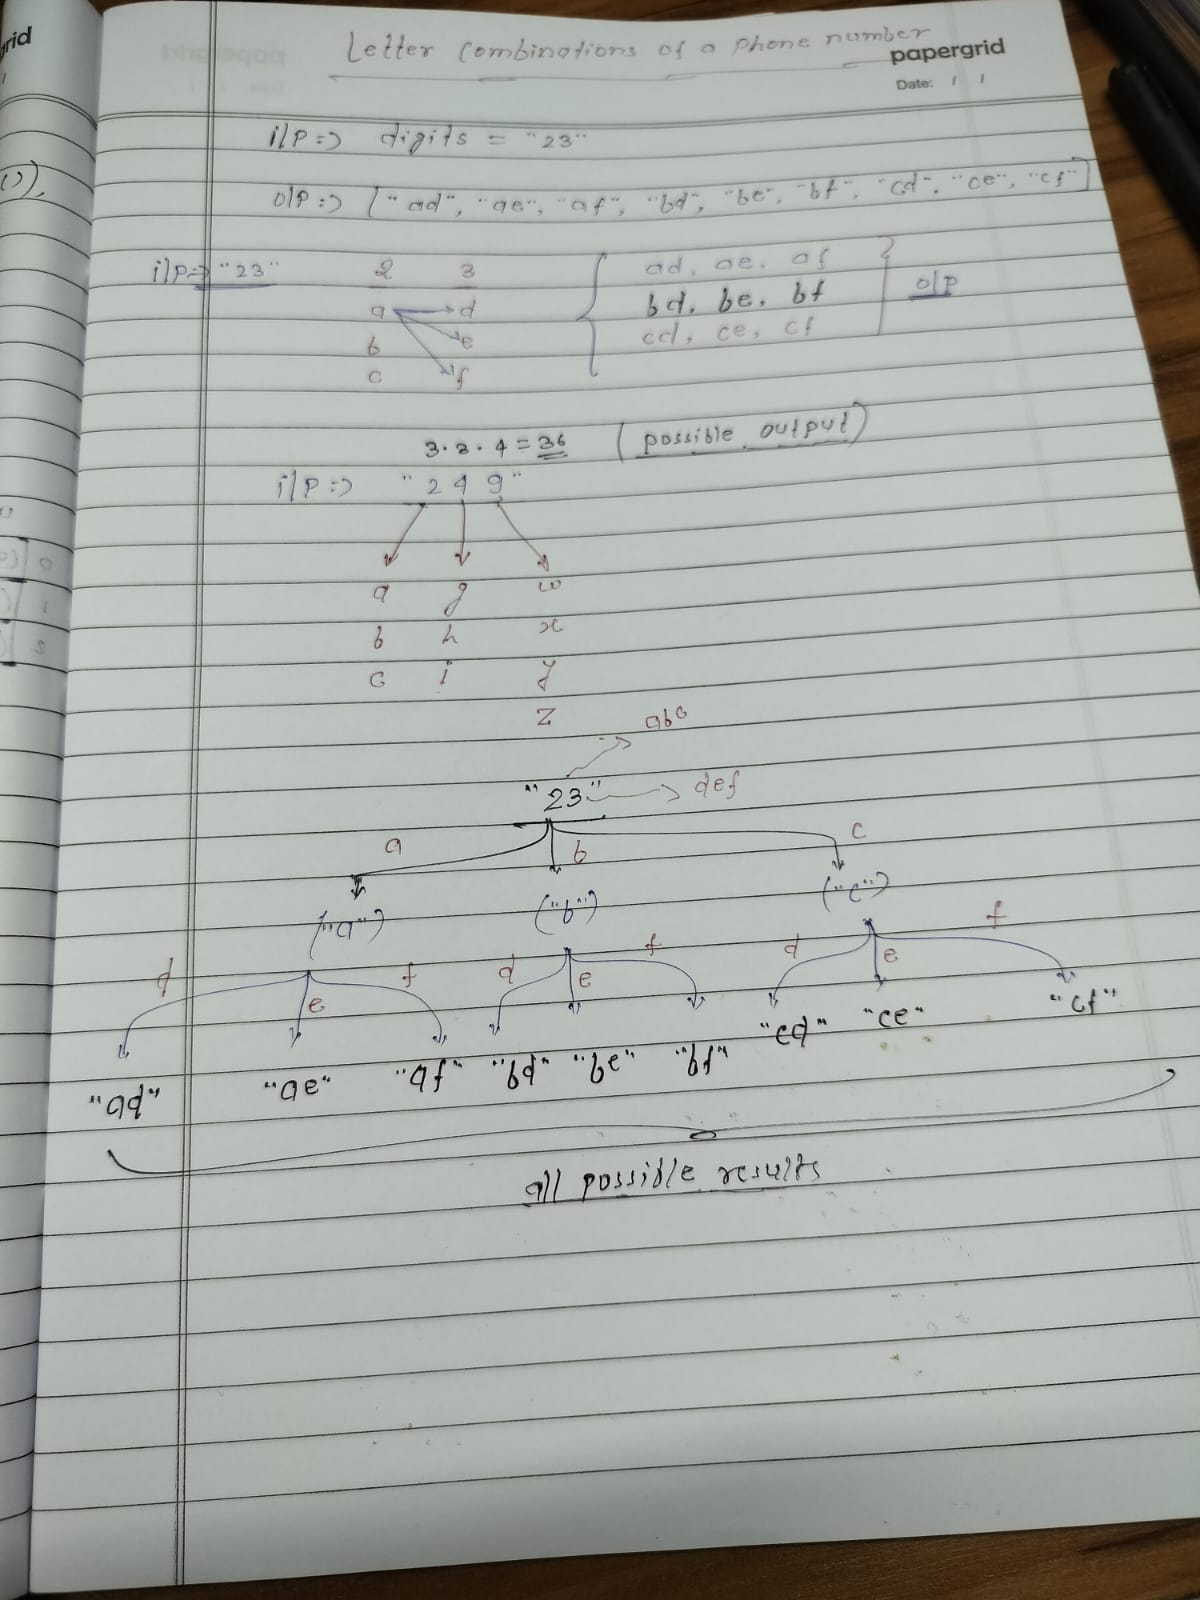 Letter Combinations of a Phone number
papergrid
Date: / /
i/p => digits = "23"
o/p => ["ad", "ae", "af", "bd", "be", "bf", "cd", "ce", "cf"]
i/p => "23" 2 3 ad, ae, af
a d bd, be, bf o/p
b e cd, ce, cf
c f
3.3.4 = 36 (possible output)
i/p => "2 4 9"
a g w
b h x
c i y
z
abc
"23" def
a b c
("a") ("b") ("c")
d e f d e f d e f
"ad" "ae" "af" "bd" "be" "bf" "cd" "ce" "cf"
all possible results